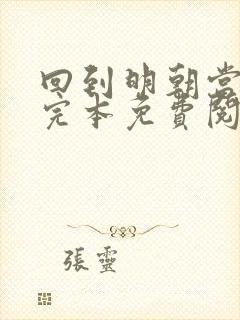 回到明朝当
完本免費閱
張靈